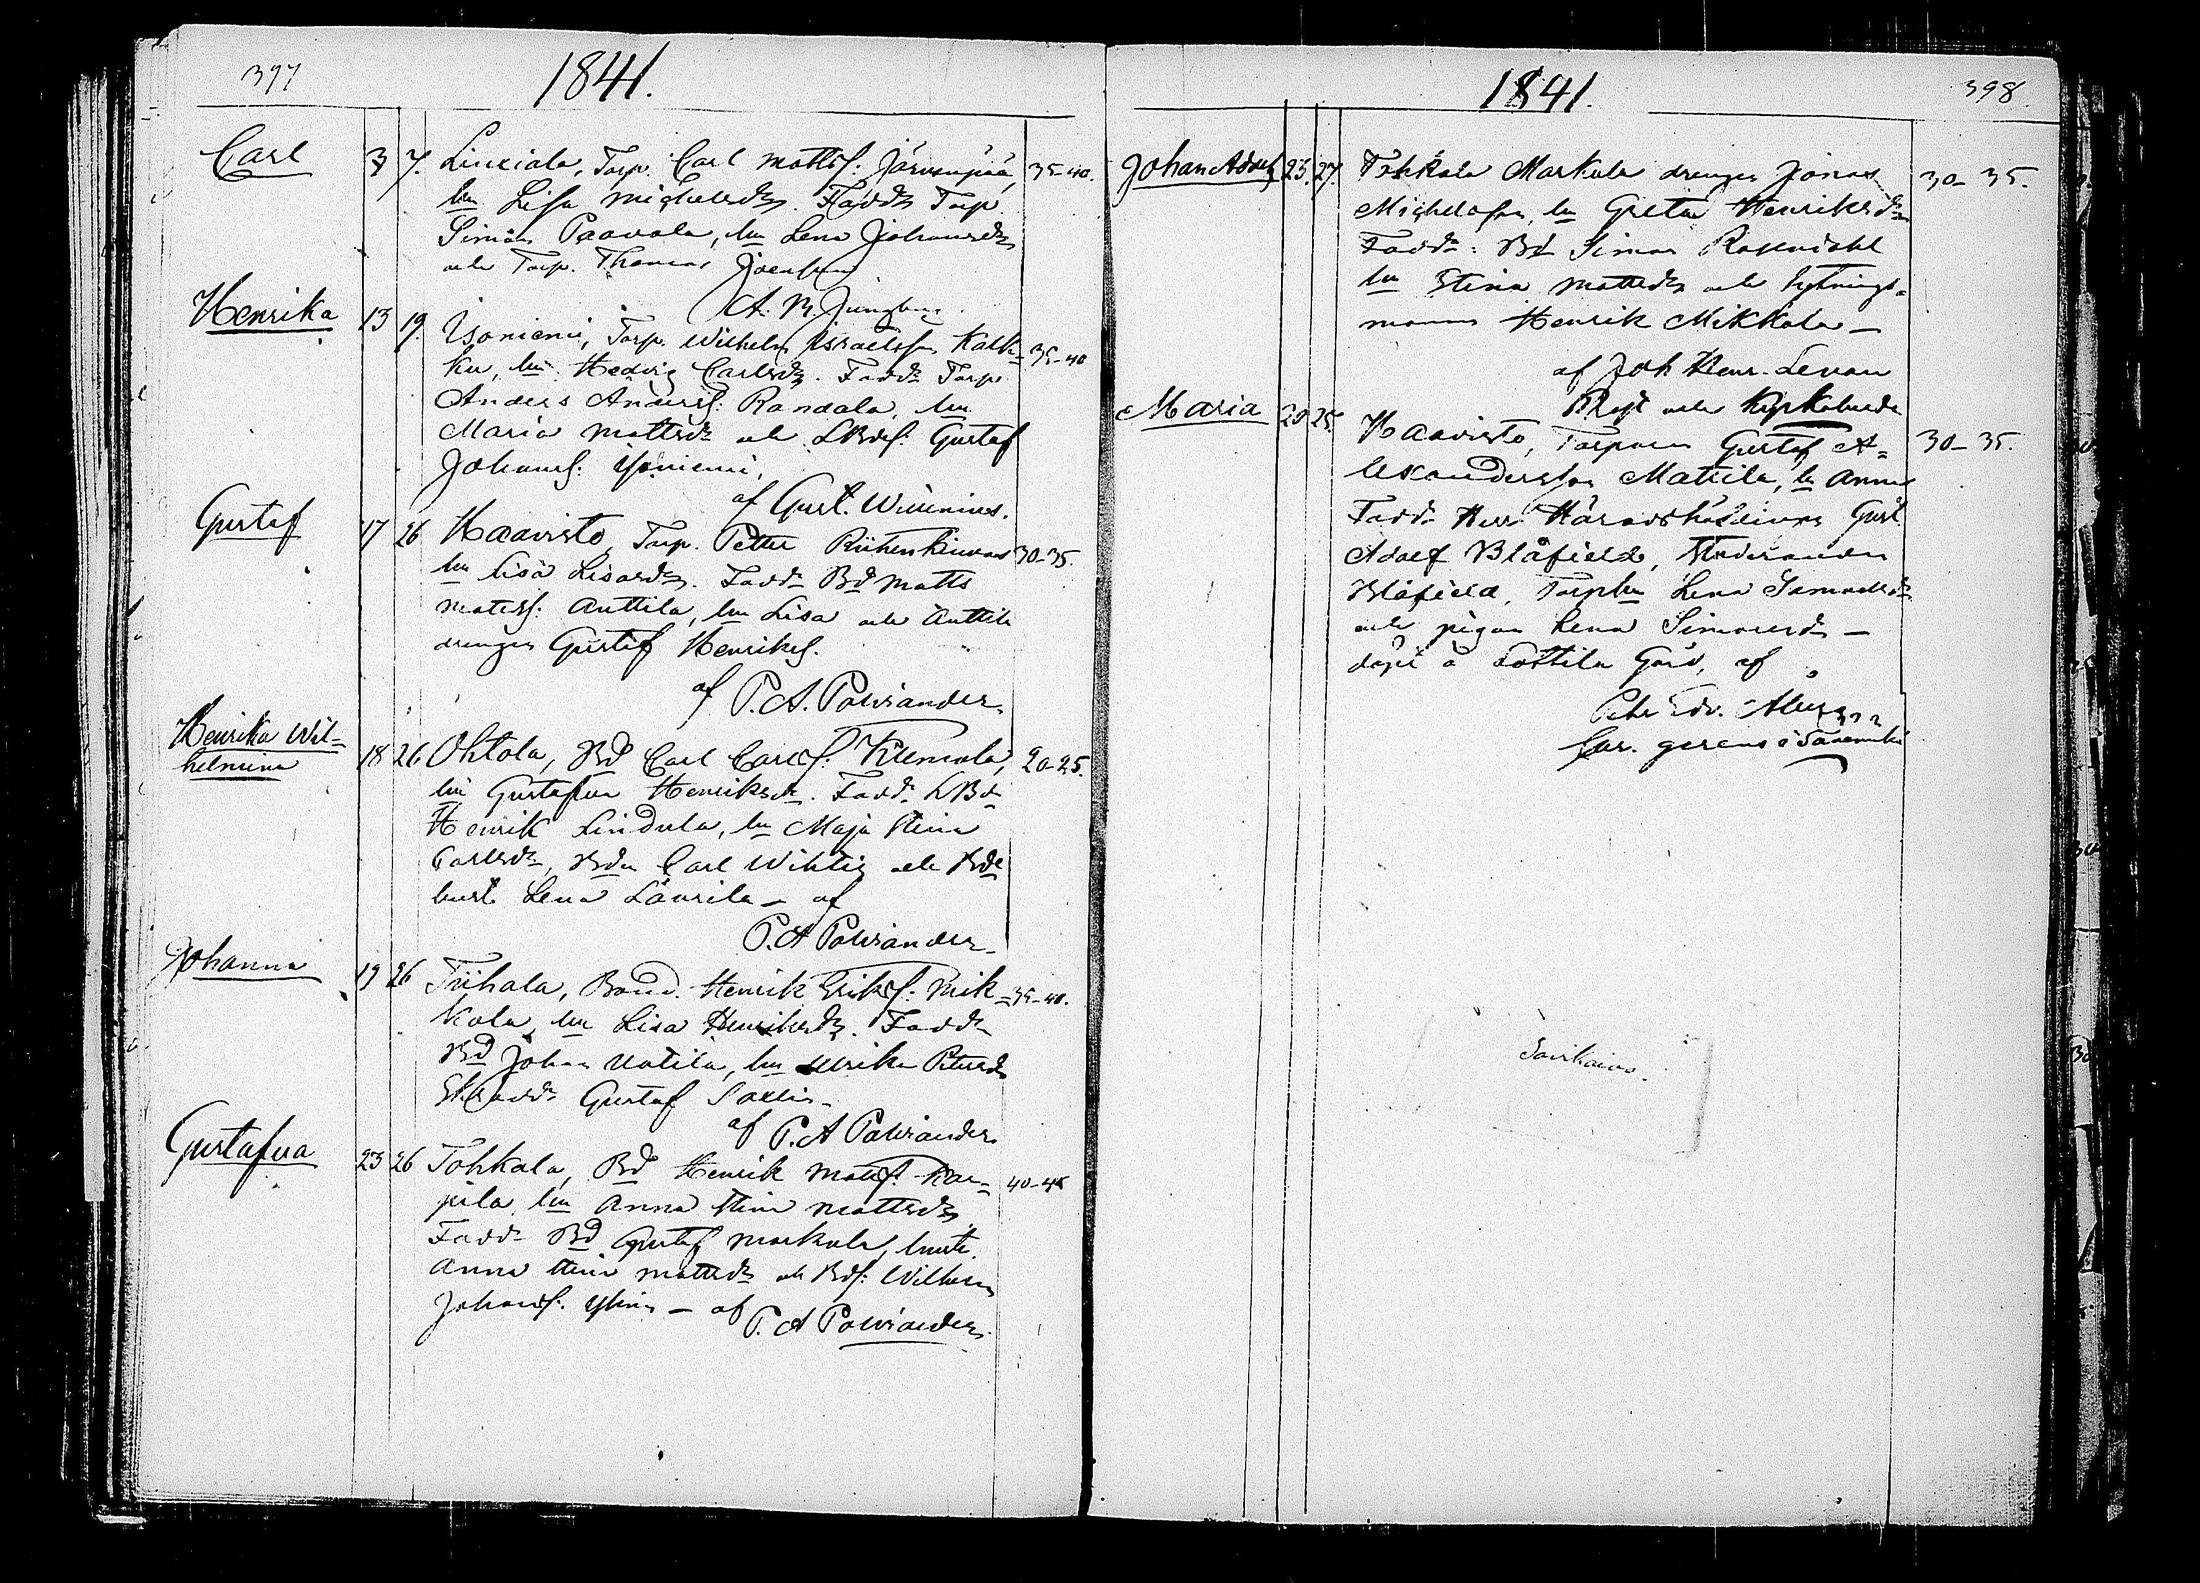 397
1841.
Carl 3 7. Linciala, Torp. Carl Mattsf: Järvenpää, 35-40.
hu Lisa Michelsdr. Faddr Torp
Simon Paavola, hu Lena Johansdr
och Torp. Thomas
A. M. Ljungberg
Henrika 13 19. Isoniemi, Torp. Wilhelm Israelsson Kalk= 35-40
ku, hu Hedvig Carlsdr. Faddr Torp
Anders Andersf: Randala, hu
Maria Mattsdr och LBdesf: Gustaf
Johansf:
af Gust. Winnius.
Gustaf 17 26 Haavisto, Torp. Petter 30-35.
hu Lisa Faddr Bd Matts
Mattsf: Anttila, hu Lisa och Anttila
drengen Gustaf Henriksf.
af P. A. Polviander.
Henrika Wil=
helmina 18 26 Ohtola, Bd Carl Carlsf: 20-25.
hu Gustafva Henriksdr. Faddr LBd
Henrik Lindula, hu Maja Stina
Carlsdr, Bdn Carl Wihtis och Bde
hust. Lena Laurila – af
P. A Polviander
Johanna 19 26 Tiihala, Bond. Henrik Eriksf: Mik= 35-40.
kola, hu Lisa Henriksdr. Faddr
Bd Johan Uotila, hu Ulrika Pettersdr
Gustaf
af P. A Polviander
Gustafva 23 26 Tohkala, Bd Henrik Mattsf. Kar= 40-45
pila, hu Anna Stina Mattsdr
Faddr Bd Gustaf Markula, hust.
Anna Stina Mattsdr och Bdsf: Wilhelm
Johansf. – af P. A Polviander.
1841.
398.
Johan Adolf 23. 27. Tohkala Markula drengen Jonas 30-35.
Michelsson, hu Greta Henriksdr
Faddr: Bd Simon Rosendahl
hu Stina Mattsdr och hytnings=
mannen Henrik Mikkola –
af Joh Henr. Levan
Prost och Kyrkoherde
Maria 20 25. Haavisto, Torparen Gustaf A= 30-35.
lexandersson Mattila, hu Anna
Faddr Herr Häradshöfdingen Gust.
Adolf Blåfield, Studeranden
Blåfield, Torphu Lena Samuelsdr
och pigan Lena Simonsdr –
döpt å Sottila Gård, af
Petr Edv.
Cur. gerens i
Savikaivo.